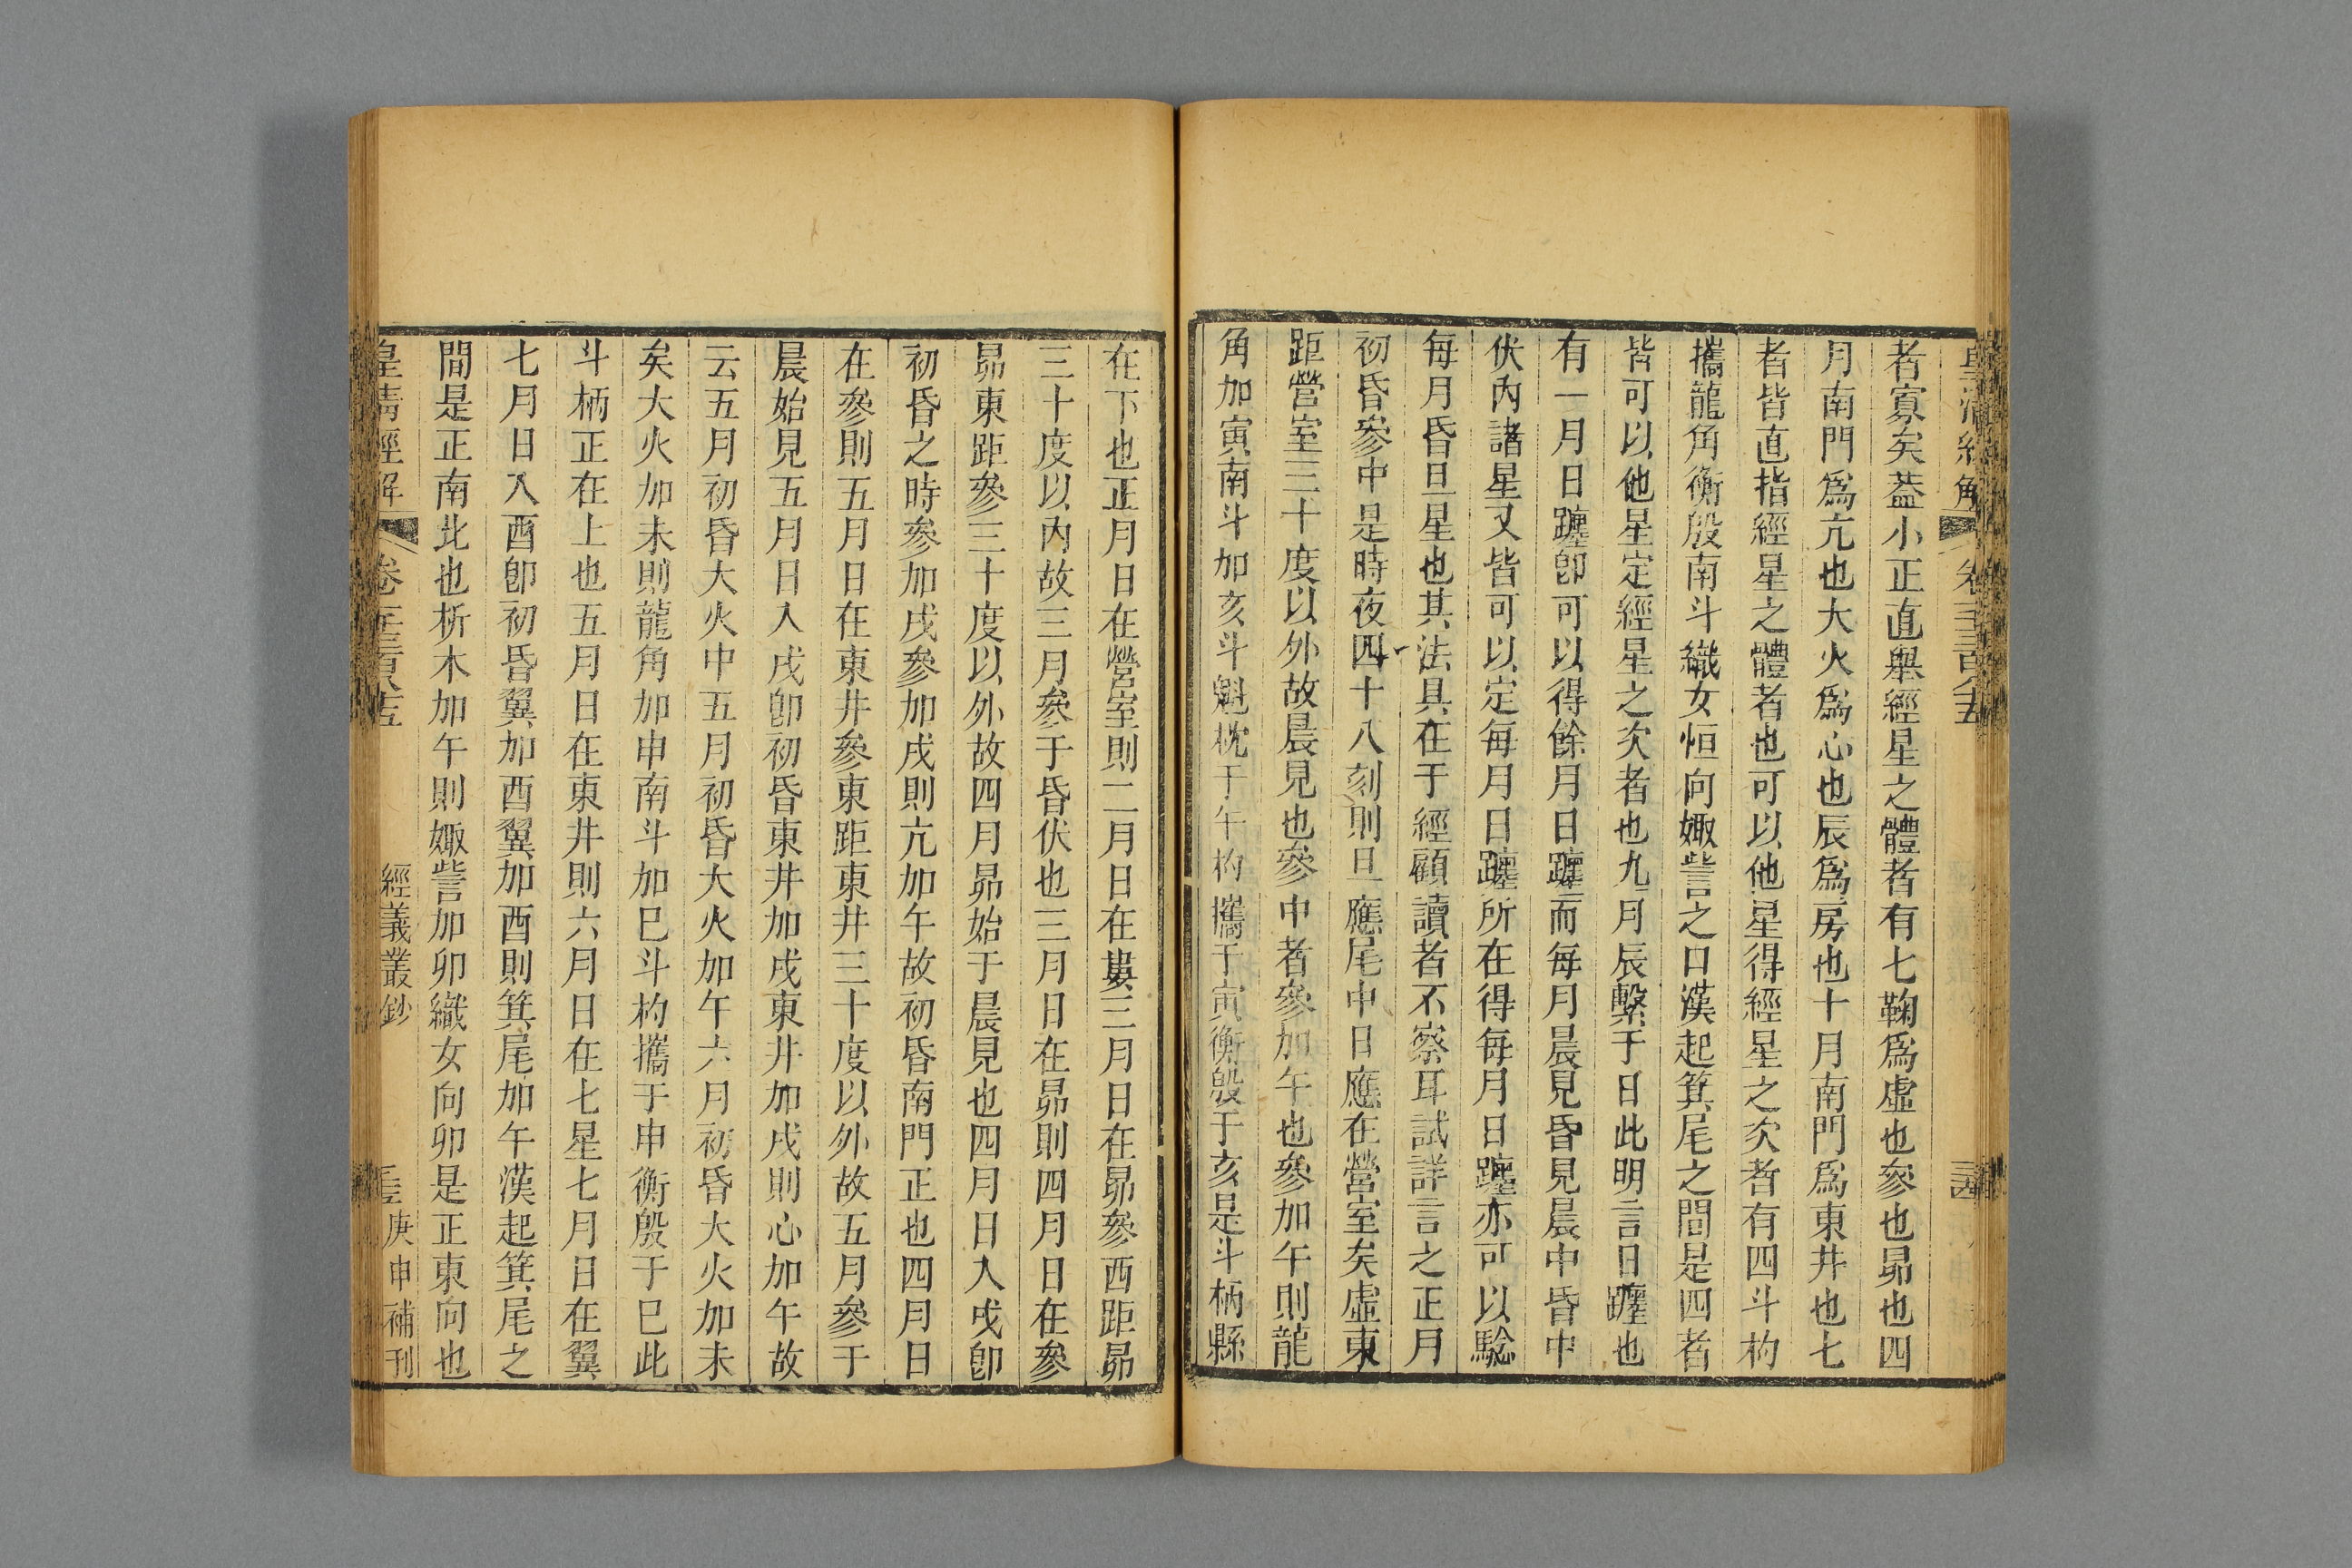 皇清經解 卷一千三百八十五
者寡矣葢小正直舉經星之體者有七鞠爲虛也參也昴也四
月南門爲亢也大火爲心也辰爲房也十月南門爲東井也七
者皆直指經星之體者也可以他星得經星之次者有四斗杓
攜龍角衡殷南斗織女恒向娵訾之口漢起箕尾之間是四者
皆可以他星定經星之次者也九月辰繫于日此明言日躔也
有一月日躔卽可以得餘月日躔而每月晨見昏見晨中昏中
伏內諸星又皆可以定每月日躔所在得每月日躔亦可以驗
每月昏旦星也其法具在于經顧讀者不察耳試詳言之正月
初昏參中是時夜四十八刻則旦應尾中日應在營室矣虛東
距營室三十度以外故晨見也參中者參加午也參加午則龍
角加寅南斗加亥斗魁枕于午杓攜于寅衡殷于亥是斗柄縣
在下也正月日在營室則二月日在婁三月日在昴參西距昴
三十度以內故三月參于昏伏也三月日在昴則四月日在參
昴東距參三十度以外故四月昴始于晨見也四月日入戌卽
初昏之時參加戌參加戌則亢加午故初昏南門正也四月日
在參則五月日在東井參東距東井三十度以外故五月參于
晨始見五月日入戌卽初昏東井加戌東井加戌則心加午故
云五月初昏大火中五月初昏大火加午六月初昏大火加未
矣大火加未則龍角加申南斗加巳斗杓攜于申衡殷于巳此
斗柄正在上也五月日在東井則六月日在七星七月日在翼
七月日入酉卽初昏翼加酉翼加酉則箕尾加午漢起箕尾之
間是正南北也析木加午則娵訾加卯織女向卯是正東向也
皇清經解 經義叢鈔 庚申補刊